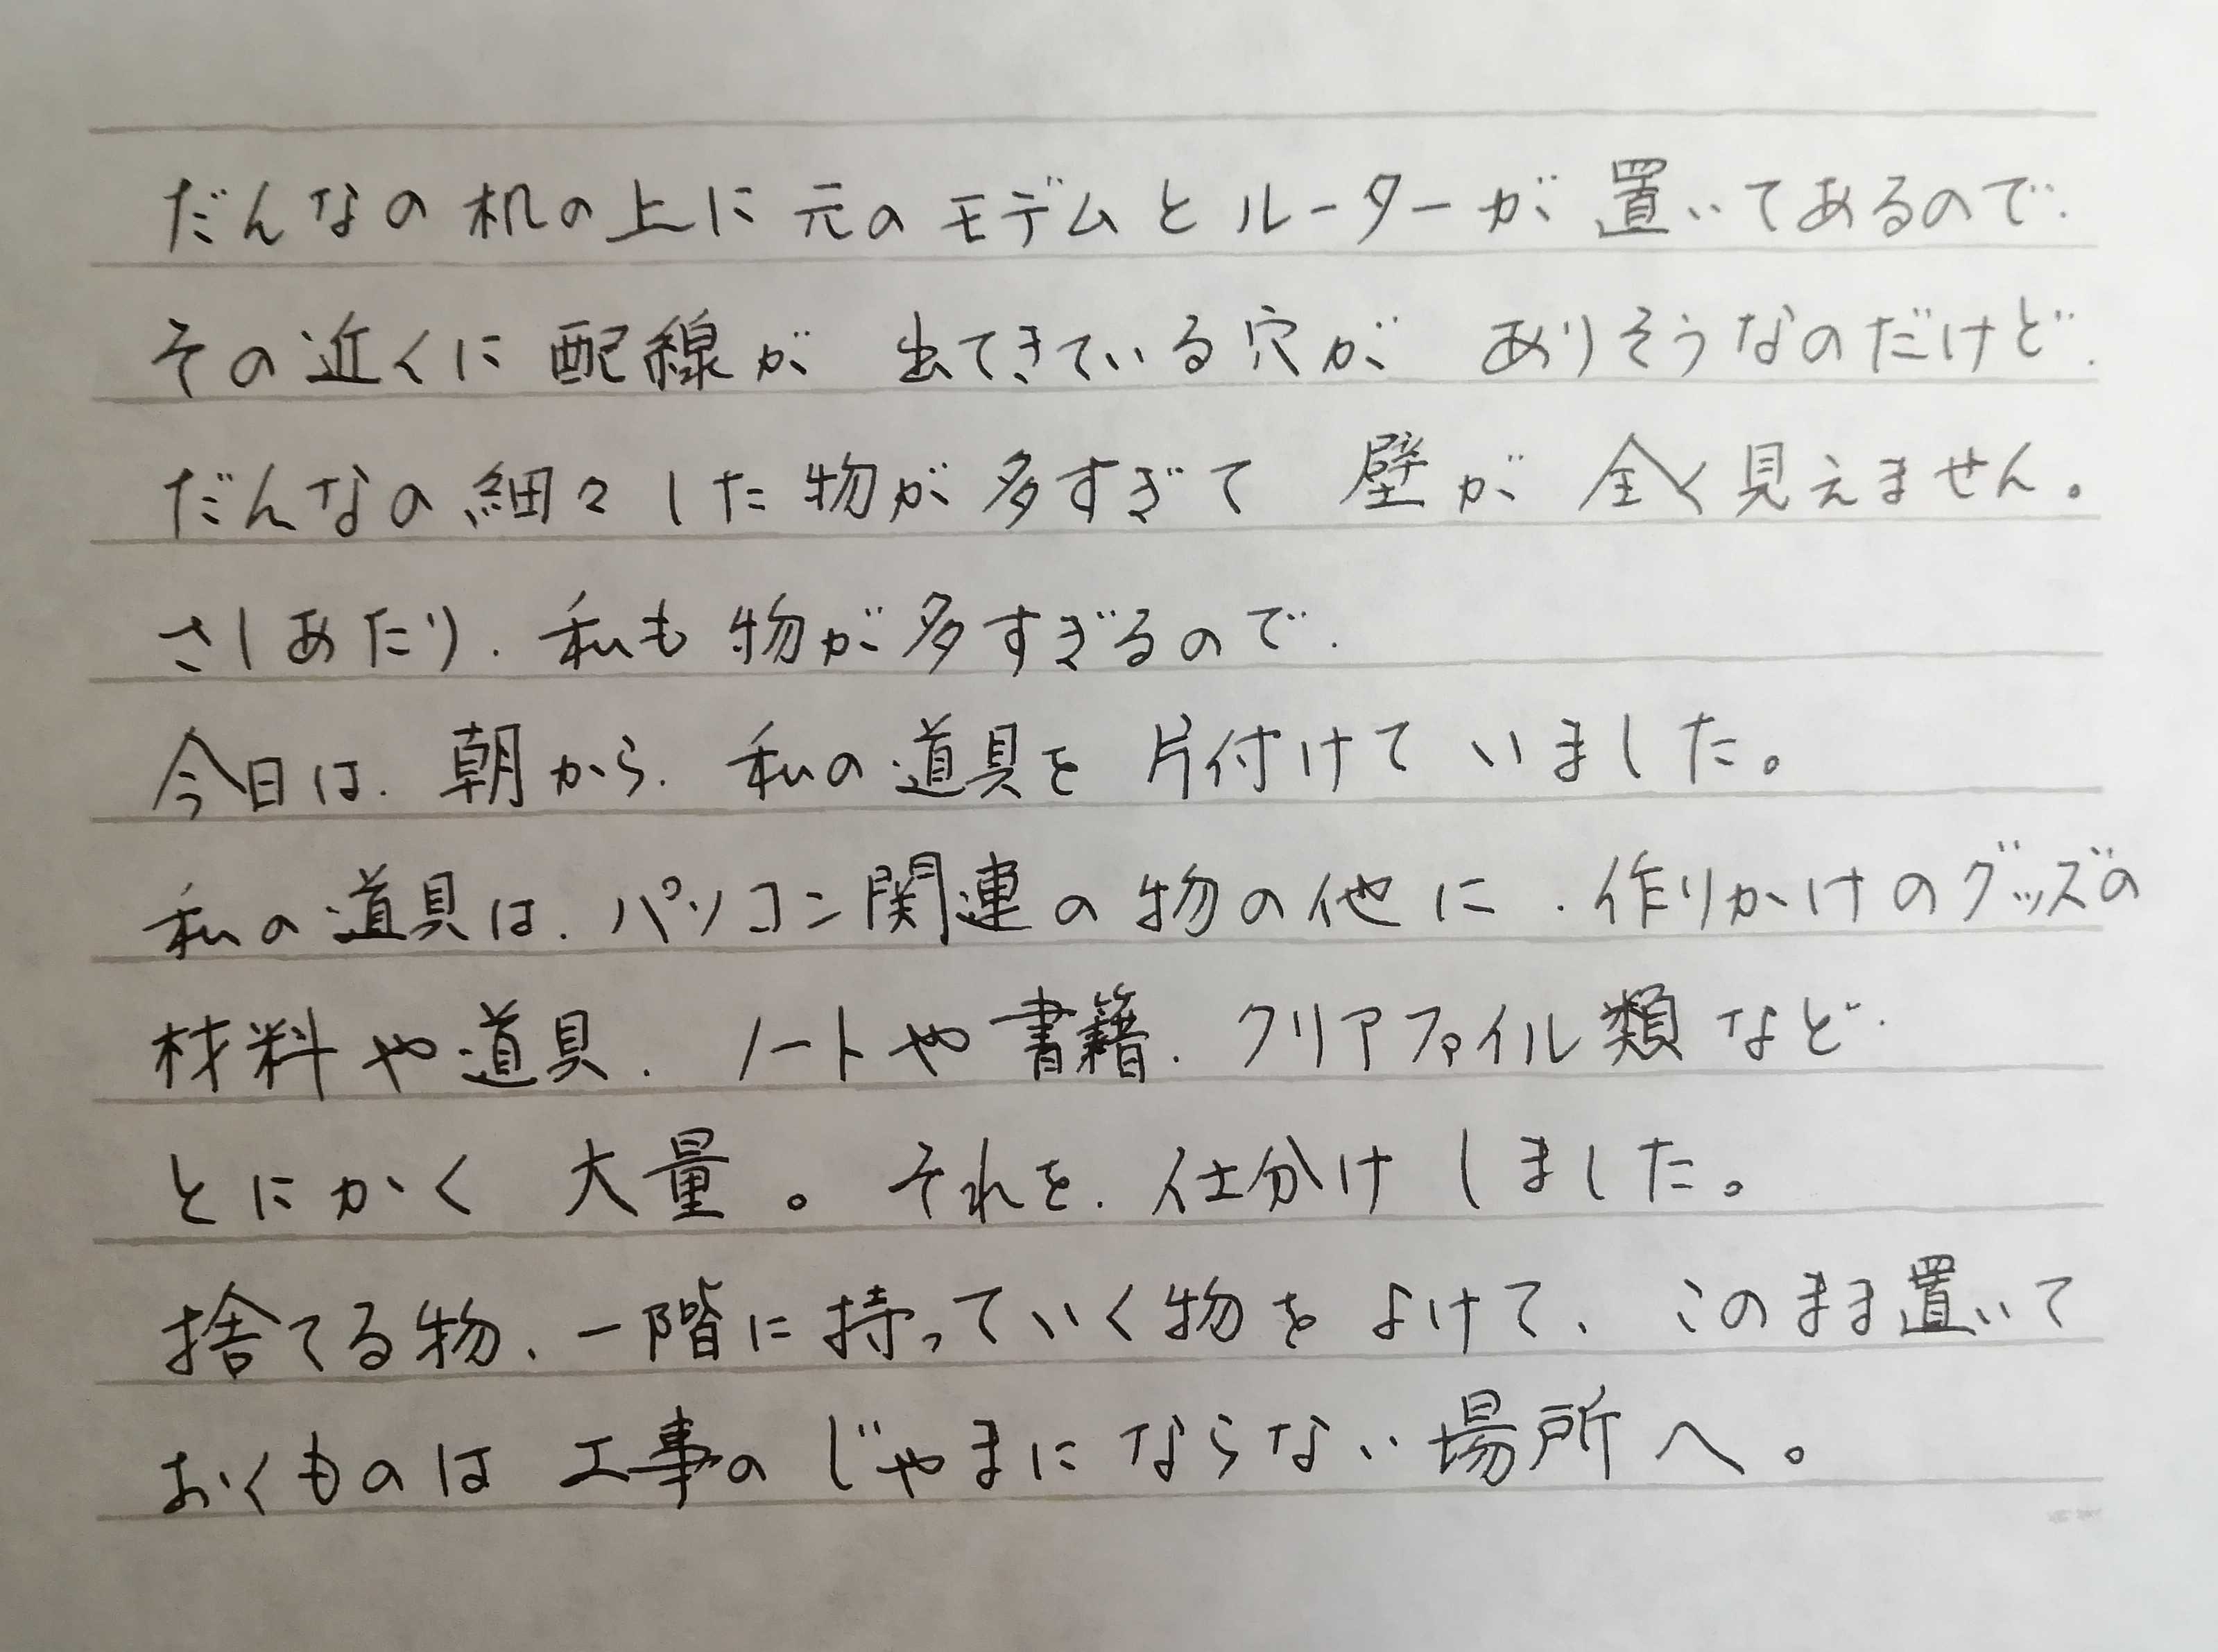 だんなの机の上に元のモデムとルーターが置いてあるので、
その近くに配線が出てきている穴がありそうなのだけど、
だんなの細々した物が多すぎて壁が全く見えません。
さしあたり、私も物が多すぎるので、
今日は、朝から、私の道具を片付けていました。
私の道具は、パソコン関連の物の他に、作りかけのグッズの
材料や道具、ノートや書籍、クリアファイル類など、
とにかく大量。それを、仕分けしました。
捨てる物、一階に持っていく物をよけて、このまま置いて
おくものは工事のじゃまにならない場所へ。